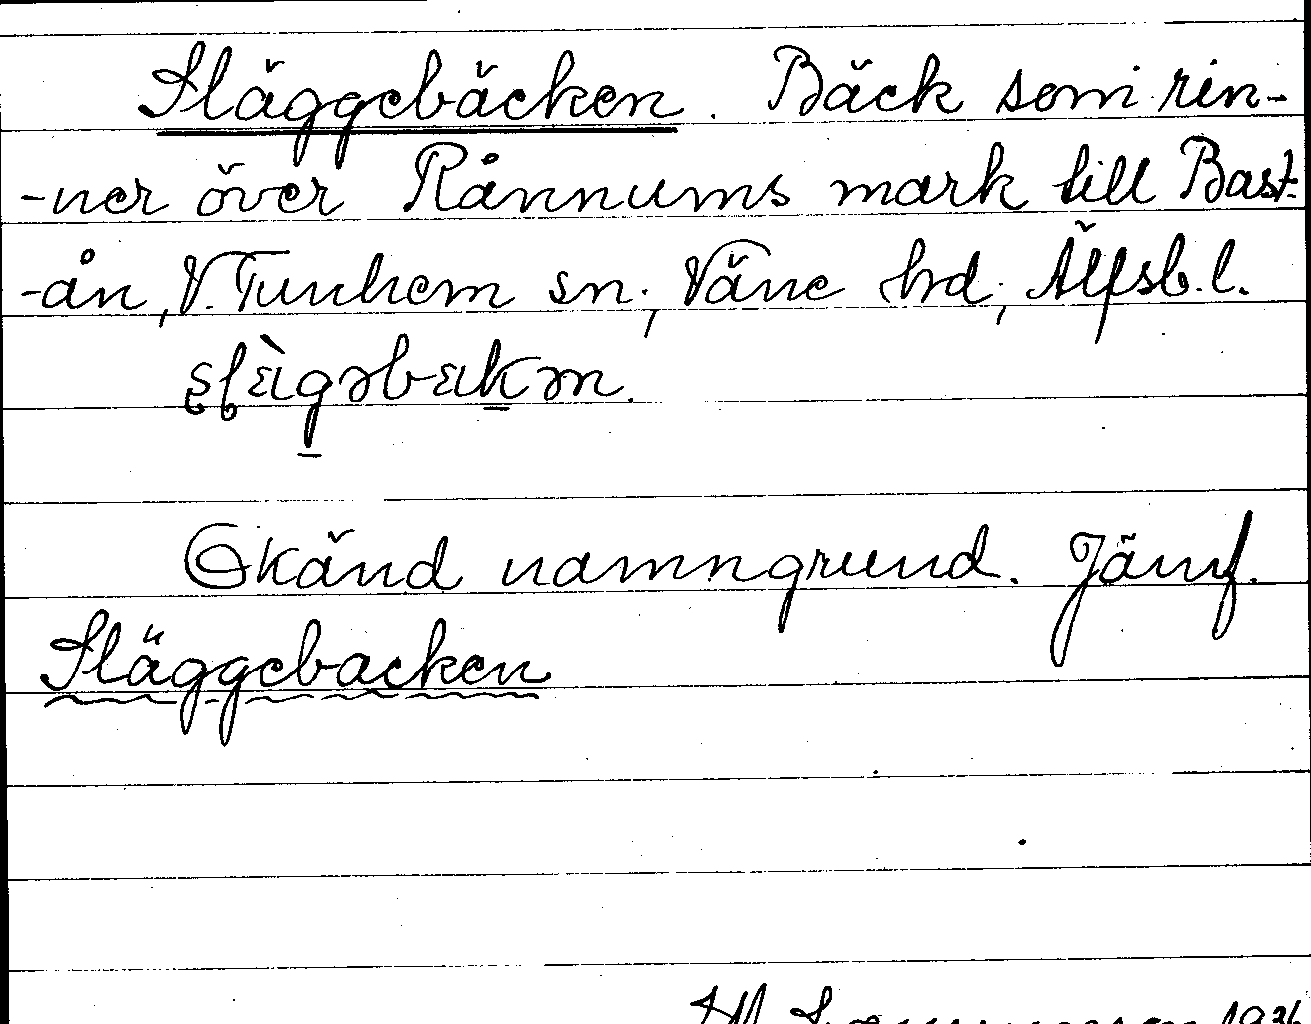 Släggebäcken. Bäck som rin-
-ner över Rånnums mark till Bast-
-ån, V. Tunhem sn., Väne hd., Älfsb. l.
Okänd namngrund. Jämf.
Släggebacken
1936